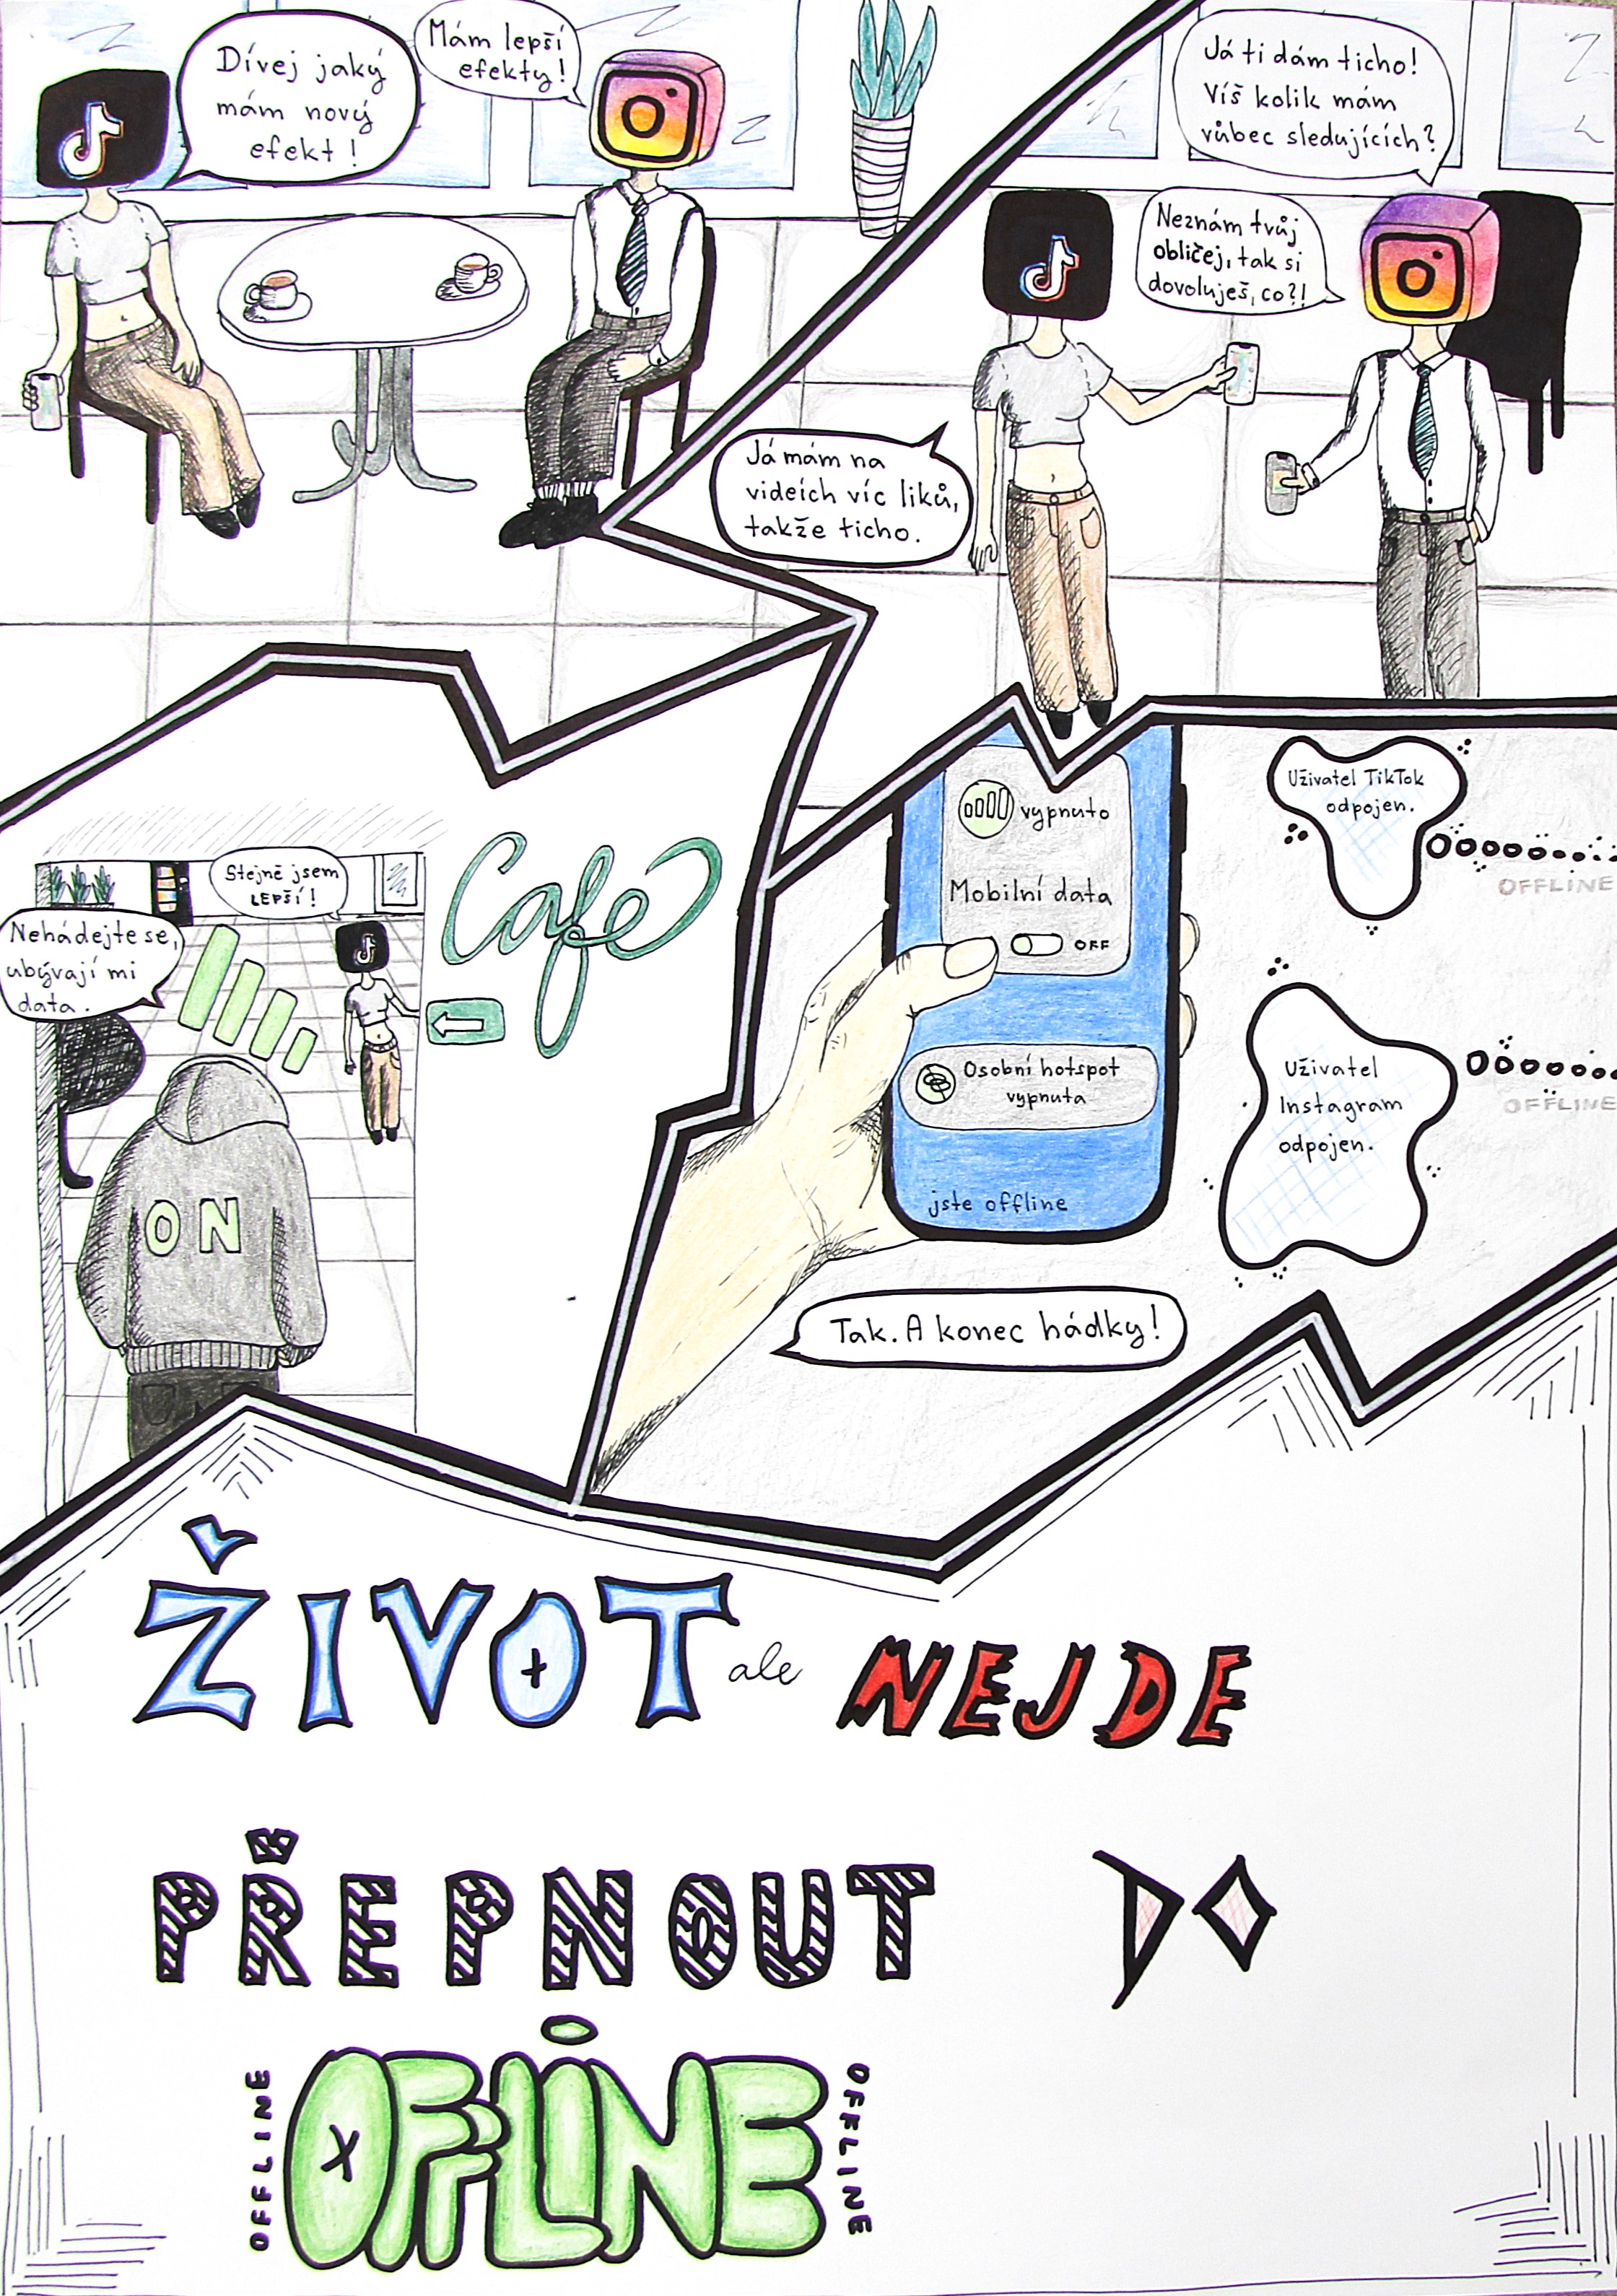 Dívej jaký
mám nový
efekt!
Mám lepší
efekty!
Já ti dám ticho!
Víš kolik mám
vůbec sledujících?
Neznám tvůj
obličej, tak si
dovoluješ, co?!
Já mám na
videích víc liků,
takže ticho.
Stejně jsem
LEPŠÍ!
Nehádejte se,
ubývají mi
data.
Café
ON
vypnuto
Mobilní data
OFF
Osobní hotspot
vypnuta
jste offline
Uživatel TikTok
odpojen.
OFFLINE
Uživatel
Instagram
odpojen.
OFFLINE
Tak. A konec hádky!
ŽIVOT ale NEJDE
PŘEPNOUT DO
OFFLINE
OFFLINE
OFFLINE